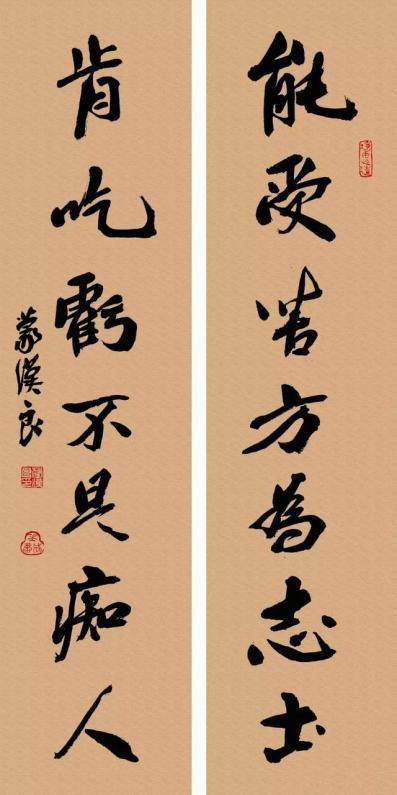 能受苦方為志士
肯吃虧不是痴人
蒙漢良